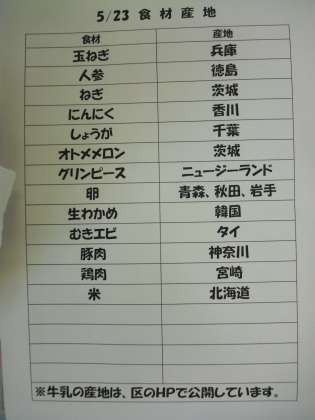 5/23 食材産地
食材 産地
玉ねぎ 兵庫
人参 徳島
ねぎ 茨城
にんにく 香川
しょうが 千葉
オトメメロン 茨城
グリンピース ニュージーランド
卵 青森、秋田、岩手
生わかめ 韓国
むきエビ タイ
豚肉 神奈川
鶏肉 宮崎
米 北海道
※牛乳の産地は、区のHPで公開しています。